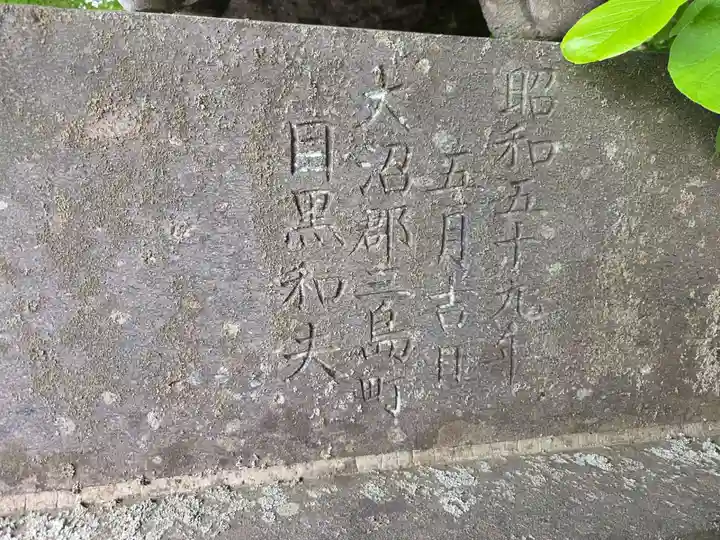 昭和五十九年
五月吉日
大沼郡三島町
目黒和夫